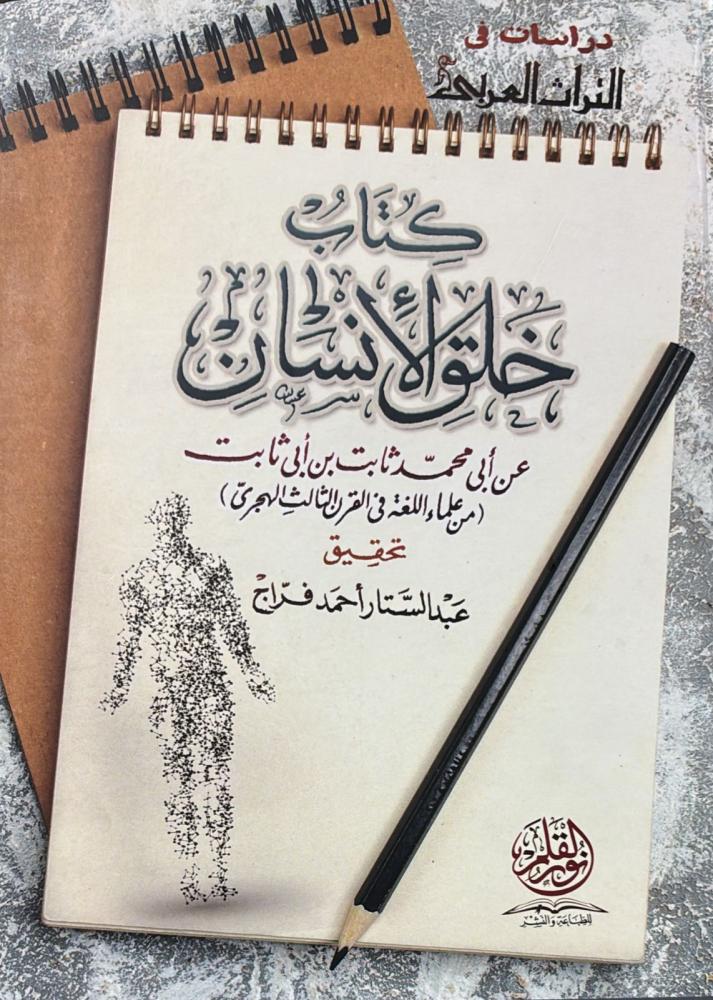 دراسات في
التراث العربي
كِتَابُ
خَلْقِ الْإِنْسَانِ
عن أبي محمّد ثابت بن أبي ثابت
(من علماء اللغة في القرن الثالث الهجريّ)
تحقيق
عبد السَّتار أحمد فرّاج
نور القلم
للطباعة والنشر